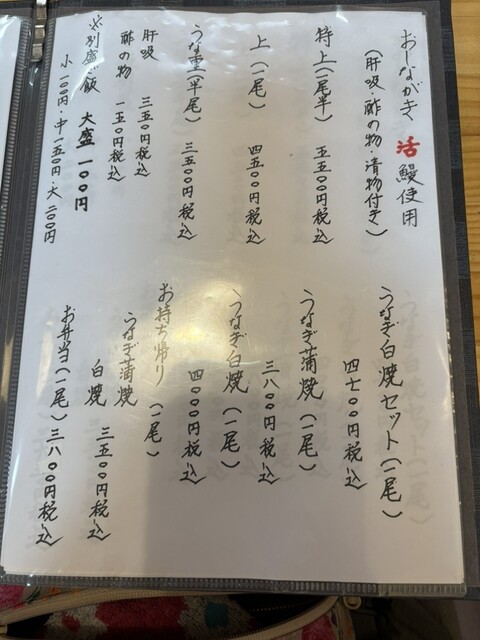 おしながき 活鰻使用
(肝吸 酢の物・漬物付き)
特上(一尾半)
五五〇〇円税込
上(一尾)
四五〇〇円税込
うな重(半尾)
三五〇〇円税込
肝吸 三五〇円税込
酢の物 一五〇円税込
※別盛ご飯 大盛一〇〇円
小一〇〇円・中一五〇円・大二〇〇円
うなぎ白焼セット(一尾)
四七〇〇円税込
うなぎ蒲焼(一尾)
三八〇〇円税込
うなぎ白焼(一尾)
四〇〇〇円税込
お持ち帰り(一尾)
うなぎ蒲焼
白焼 三五〇〇円税込
お弁当(一尾)三八〇〇円税込